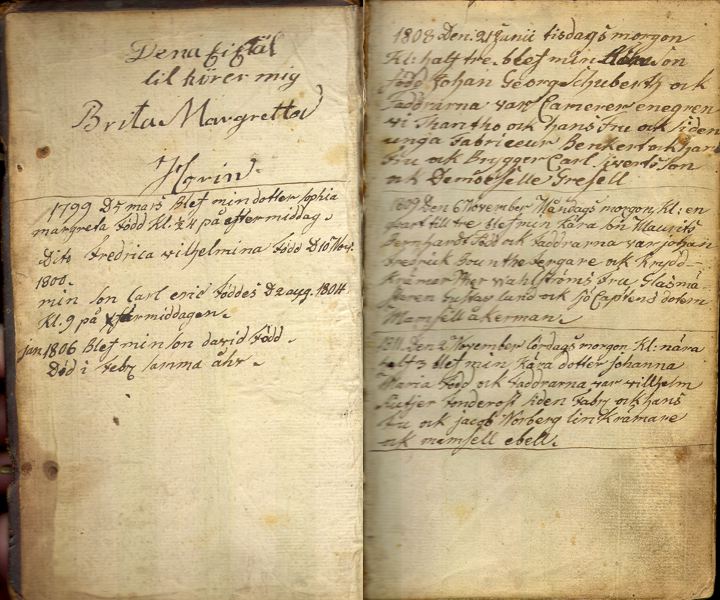 Dena
til hörer mig
Brita Margretta
Hgrin.
1799 D 5 mars Blef min dotter sophia
margreta född Kl: ½ 4 på eftermiddag.
Dito fredrica wilhelmina född D 10 Nov.
1800.
min son Carl eric föddes D 2 aug. 1804
Kl. 9 på middagen.
jan 1806 Blef min son david född.
Död i feb samma åhr.
1808 Den: 21 Junii tisdags morgon
Kl: half tre blef min son
född Johan Georg Schuberth och
faddrarna war Camerer enegren
wi och hans fru och siden
unga fabriceur Benkert och hans
fru och Brygger Carl son
och Demoiselle Gresell
1809 Den 6 November Måndags morgon, Kl: en
qvart till tre blef min Kära son Maurits
Bernhardt född och faddrarna war johan
fredrick och Krydd-
Krämar wahlströms fru, Glasmä-
staren Gustaf lund och sjö Captend
Mamsell åkerman.
1811. Den 2 November lördags morgon Kl: nära
half 3 blef min Kära dotter johanna
Maria född och faddrarna war willhelm
siden fabr och hans
fru och jacob Norberg lin Krämare
och mamsell ebell.